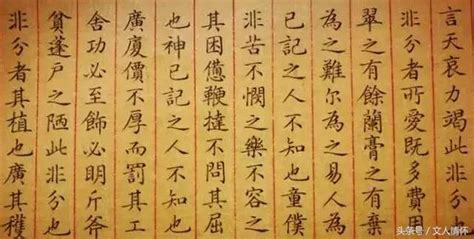 言天哀力竭此非分也
非分者所愛既多費用
翠之有餘蘭膏之有棄
為之難尔為之易人為
已記之人不知也童僕
非苦不憫之樂不容之
其困憊鞭撻不問其屈
也神已記之人不知也
廣廈價不厚而罰其工
舍功必至飾必明斤斧
貧蓬戶之陋此非分也
非分者其植也廣其穫
头条号／文人情怀